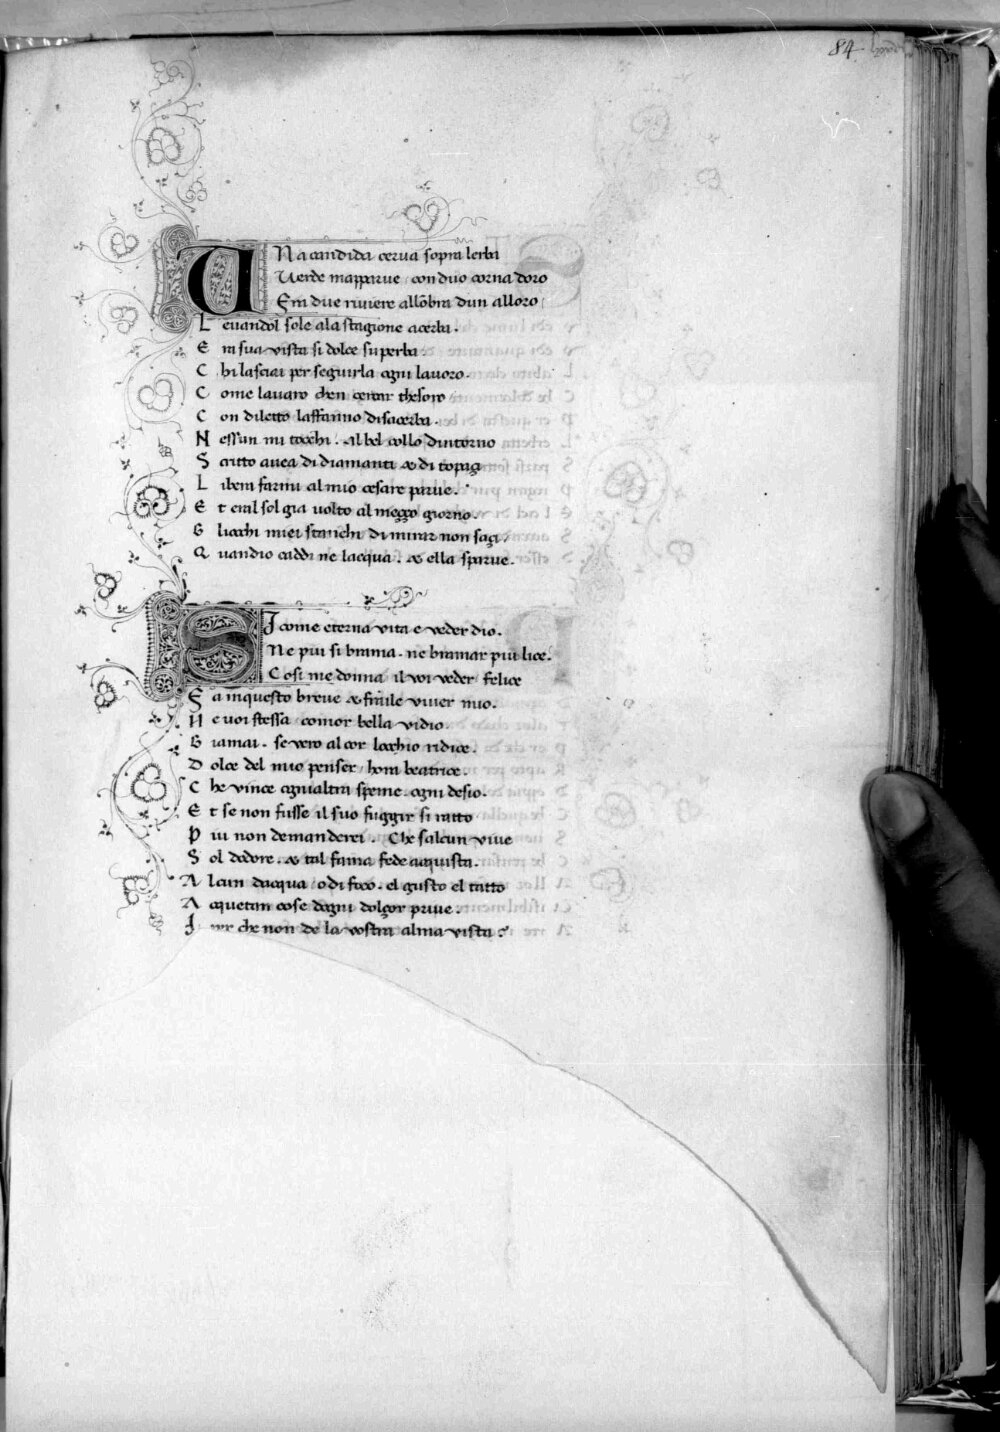 84
Una candida cerua sopra lerba
Uerde mapparue con duo corna doro
Era due riuiere allōbra dun alloro
Leuandol sole ala stagione acerba.
Era sua vista si dolce superba
Chi lasciai per seguirla ogni lauoro.
Come lauaro chen cercar thesoro
Con diletto laffanno disacerba.
Nessun mi tocchi. Al bel collo dintorno
Scritto auea di diamanti & di topaçi
Libera farmi al mio cesare parue.
Et era l sol gia uolto al meççо giorno
Gliocchi miei stanchi di mirar non saçi
Quandio caddi ne lacqua. & ella sparue.
Sicome eterna vita e veder dio.
Ne piu si brama. ne bramar piu lice.
Cosi me donna il voi veder felice
Fa inquesto breue & fraile viuer mio.
Ne uoi stessa comor bella vidio
Giamai. se vero al cor locchio ridice.
Dolce del mio penser hora beatrice.
Che vince ognialtra speme. ogni desio.
Et se non fusse il suo fuggir si ratto
Piu non demanderei. Che salcun viue
Sol dodore. & tal fama fede acquista.
Alcun dacqua o di foco. el gusto el tatto
Acquetan cose dogni dolçor priue.
I per che non de la vostra alma vista?